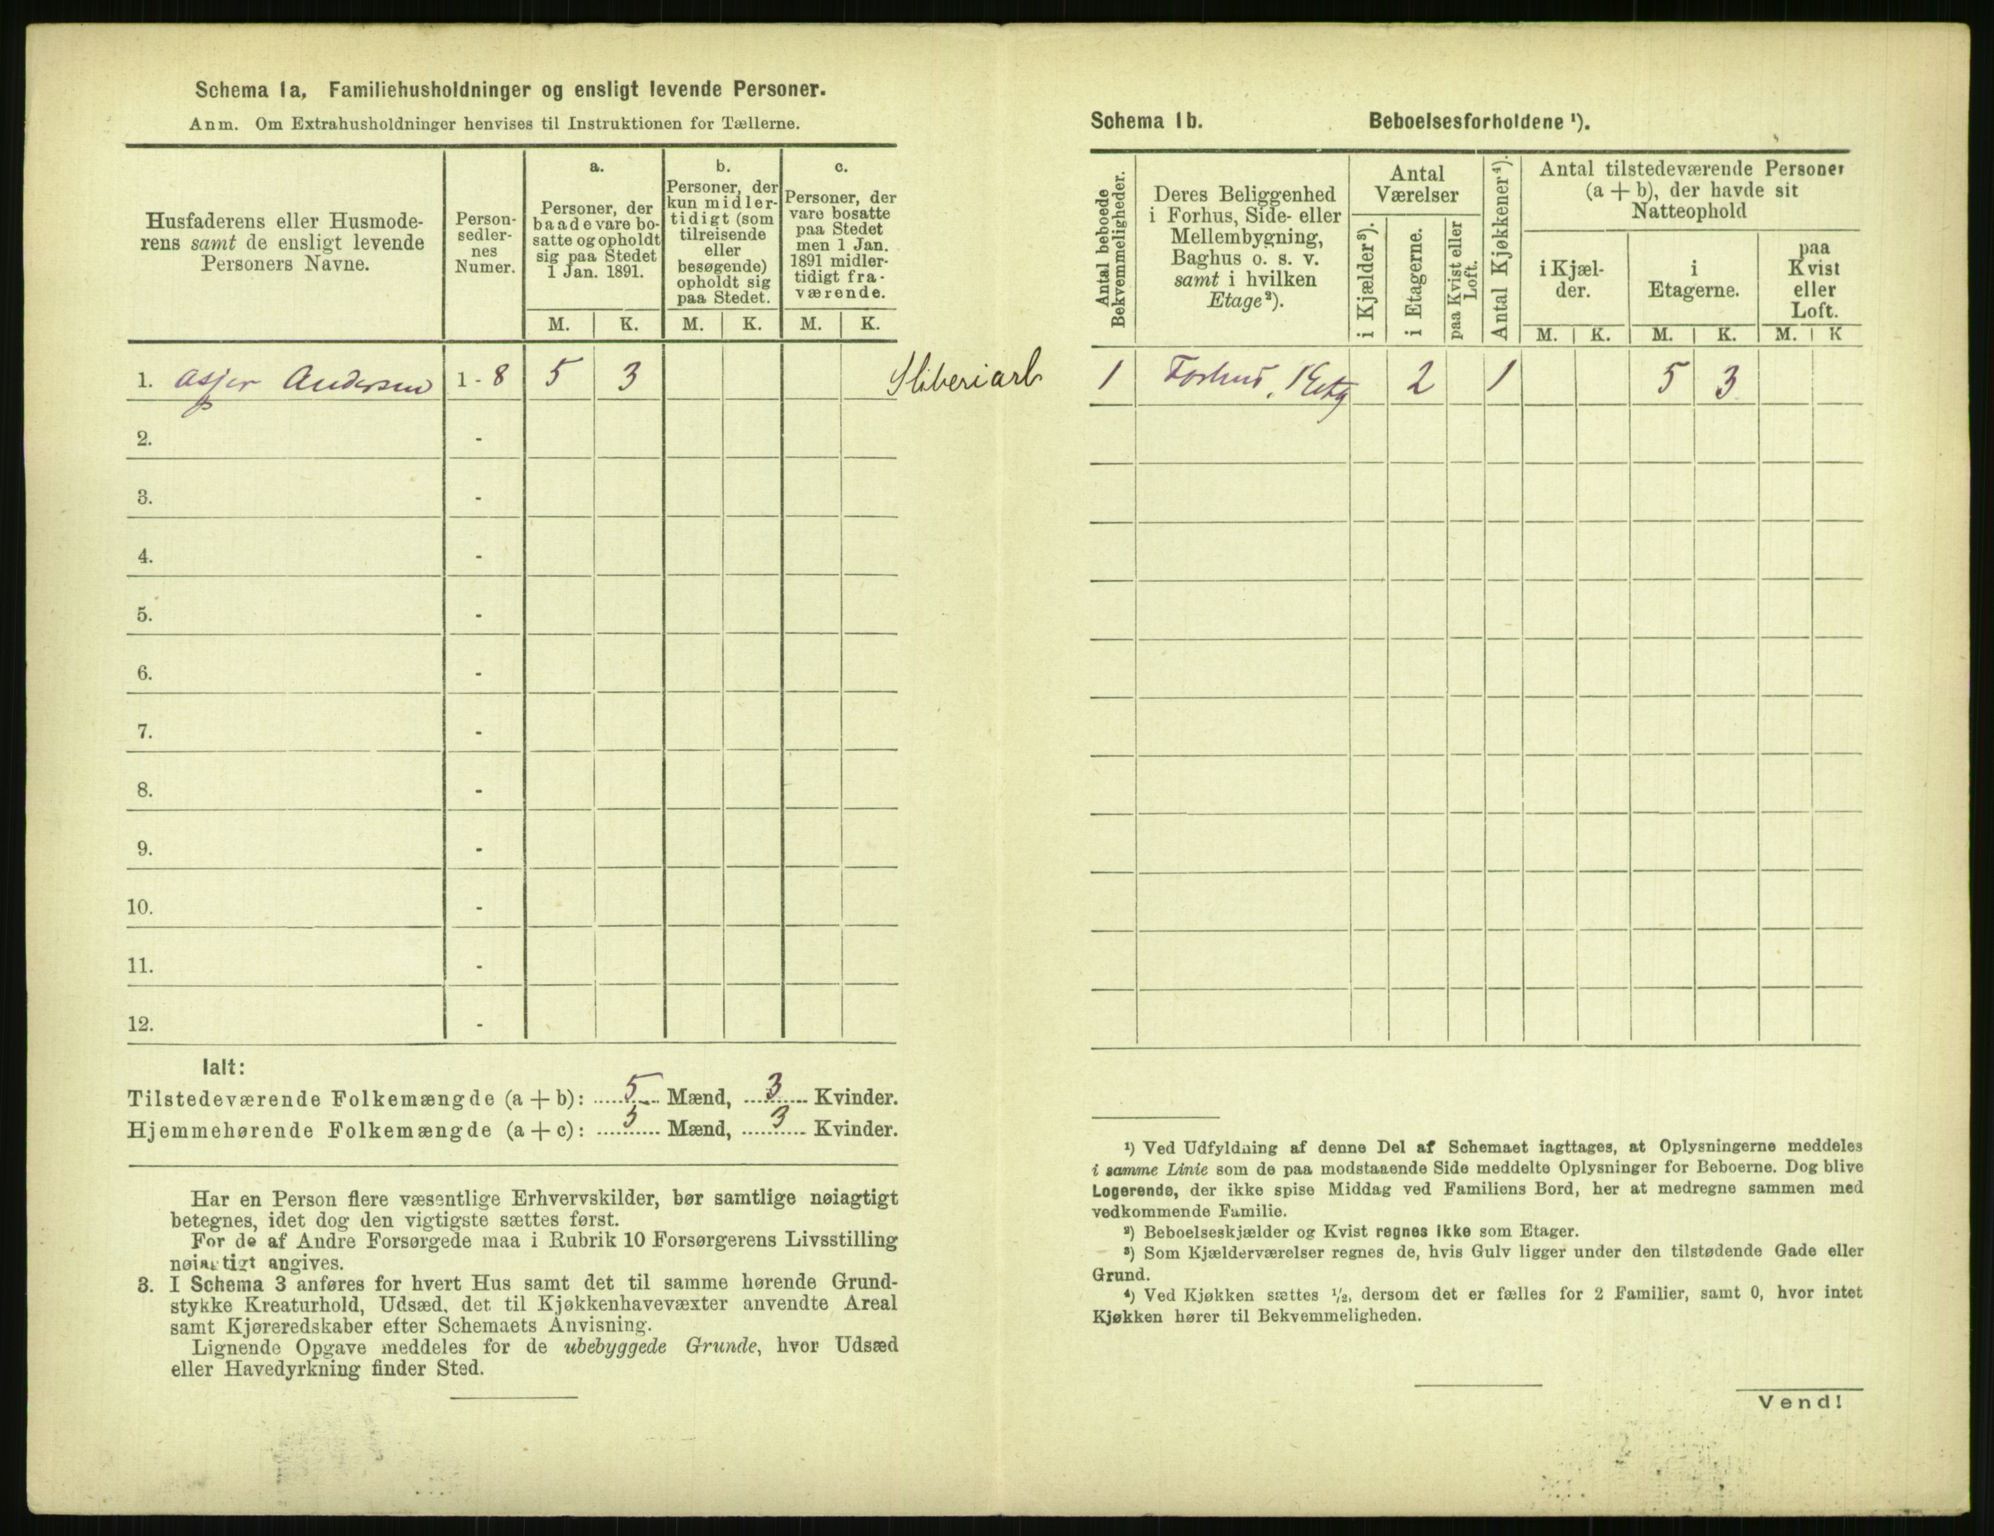 Schema 1a, Familiehusholdninger og ensligt levende Personer.
Anm. Om Extrahusholdninger henvises til Instruktionen for Tællerne.
Husfaderens eller Husmode-
rens samt de ensligt levende
Personers Navne.
Person-
sedler-
nes
Numer.
a.
Personer, der
baade vare bo-
satte og opholdt
sig paa Stedet
1 Jan. 1891.
M. K.
b.
Personer, der
kun midler-
tidigt (som
tilreisende
eller
besøgende)
opholdt sig
paa Stedet.
M. K.
c.
Personer, der
vare bosatte
paa Stedet
men 1 Jan.
1891 midler-
tidigt fra-
værende.
M. K.
1. Asjer Andersen 1 - 8 5 3 Sliberiarb
2. -
3. -
4. -
5. -
6. -
7. -
8. -
9. -
10. -
11. -
12. -
Ialt:
Tilstedeværende Folkemængde (a + b): 5 Mænd, 3 Kvinder.
Hjemmehørende Folkemængde (a + c): 5 Mænd, 3 Kvinder.
Har en Person flere væsentlige Erhvervskilder, bør samtlige nøiagtigt
betegnes, idet dog den vigtigste sættes først.
For de af Andre Forsørgede maa i Rubrik 10 Forsørgerens Livsstilling
nøiagtigt angives.
3. I Schema 3 anføres for hvert Hus samt det til samme hørende Grund-
stykke Kreaturhold, Udsæd, det til Kjøkkenhavevæxter anvendte Areal
samt Kjøreredskaber efter Schemaets Anvisning.
Lignende Opgave meddeles for de ubebyggede Grunde, hvor Udsæd
eller Havedyrkning finder Sted.
Schema 1b. Beboelsesforholdene ¹).
Antal beboede
Bekvemmeligheder.
Deres Beliggenhed
i Forhus, Side- eller
Mellembygning,
Baghus o. s. v.
samt i hvilken
Etage²).
Antal
Værelser
i Kjælder³).
i Etagerne.
paa Kvist eller
Loft.
Antal Kjøkkener⁴).
Antal tilstedeværende Personer
(a + b), der havde sit
Natteophold
i Kjæl-
der.
i
Etagerne.
paa
Kvist
eller
Loft.
M. K. M. K. M. K
1 Forhus, 1 Etg 2 1 5 3
¹) Ved Udfyldning af denne Del af Schemaet iagttages, at Oplysningerne meddeles
i samme Linie som de paa modstaaende Side meddelte Oplysninger for Beboerne. Dog blive
Logerende, der ikke spise Middag ved Familiens Bord, her at medregne sammen med
vedkommende Familie.
²) Beboelseskjælder og Kvist regnes ikke som Etager.
³) Som Kjælderværelser regnes de, hvis Gulv ligger under den tilstødende Gade eller
Grund.
⁴) Ved Kjøkken sættes ½, dersom det er fælles for 2 Familier, samt 0, hvor intet
Kjøkken hører til Bekvemmeligheden.
Vend!